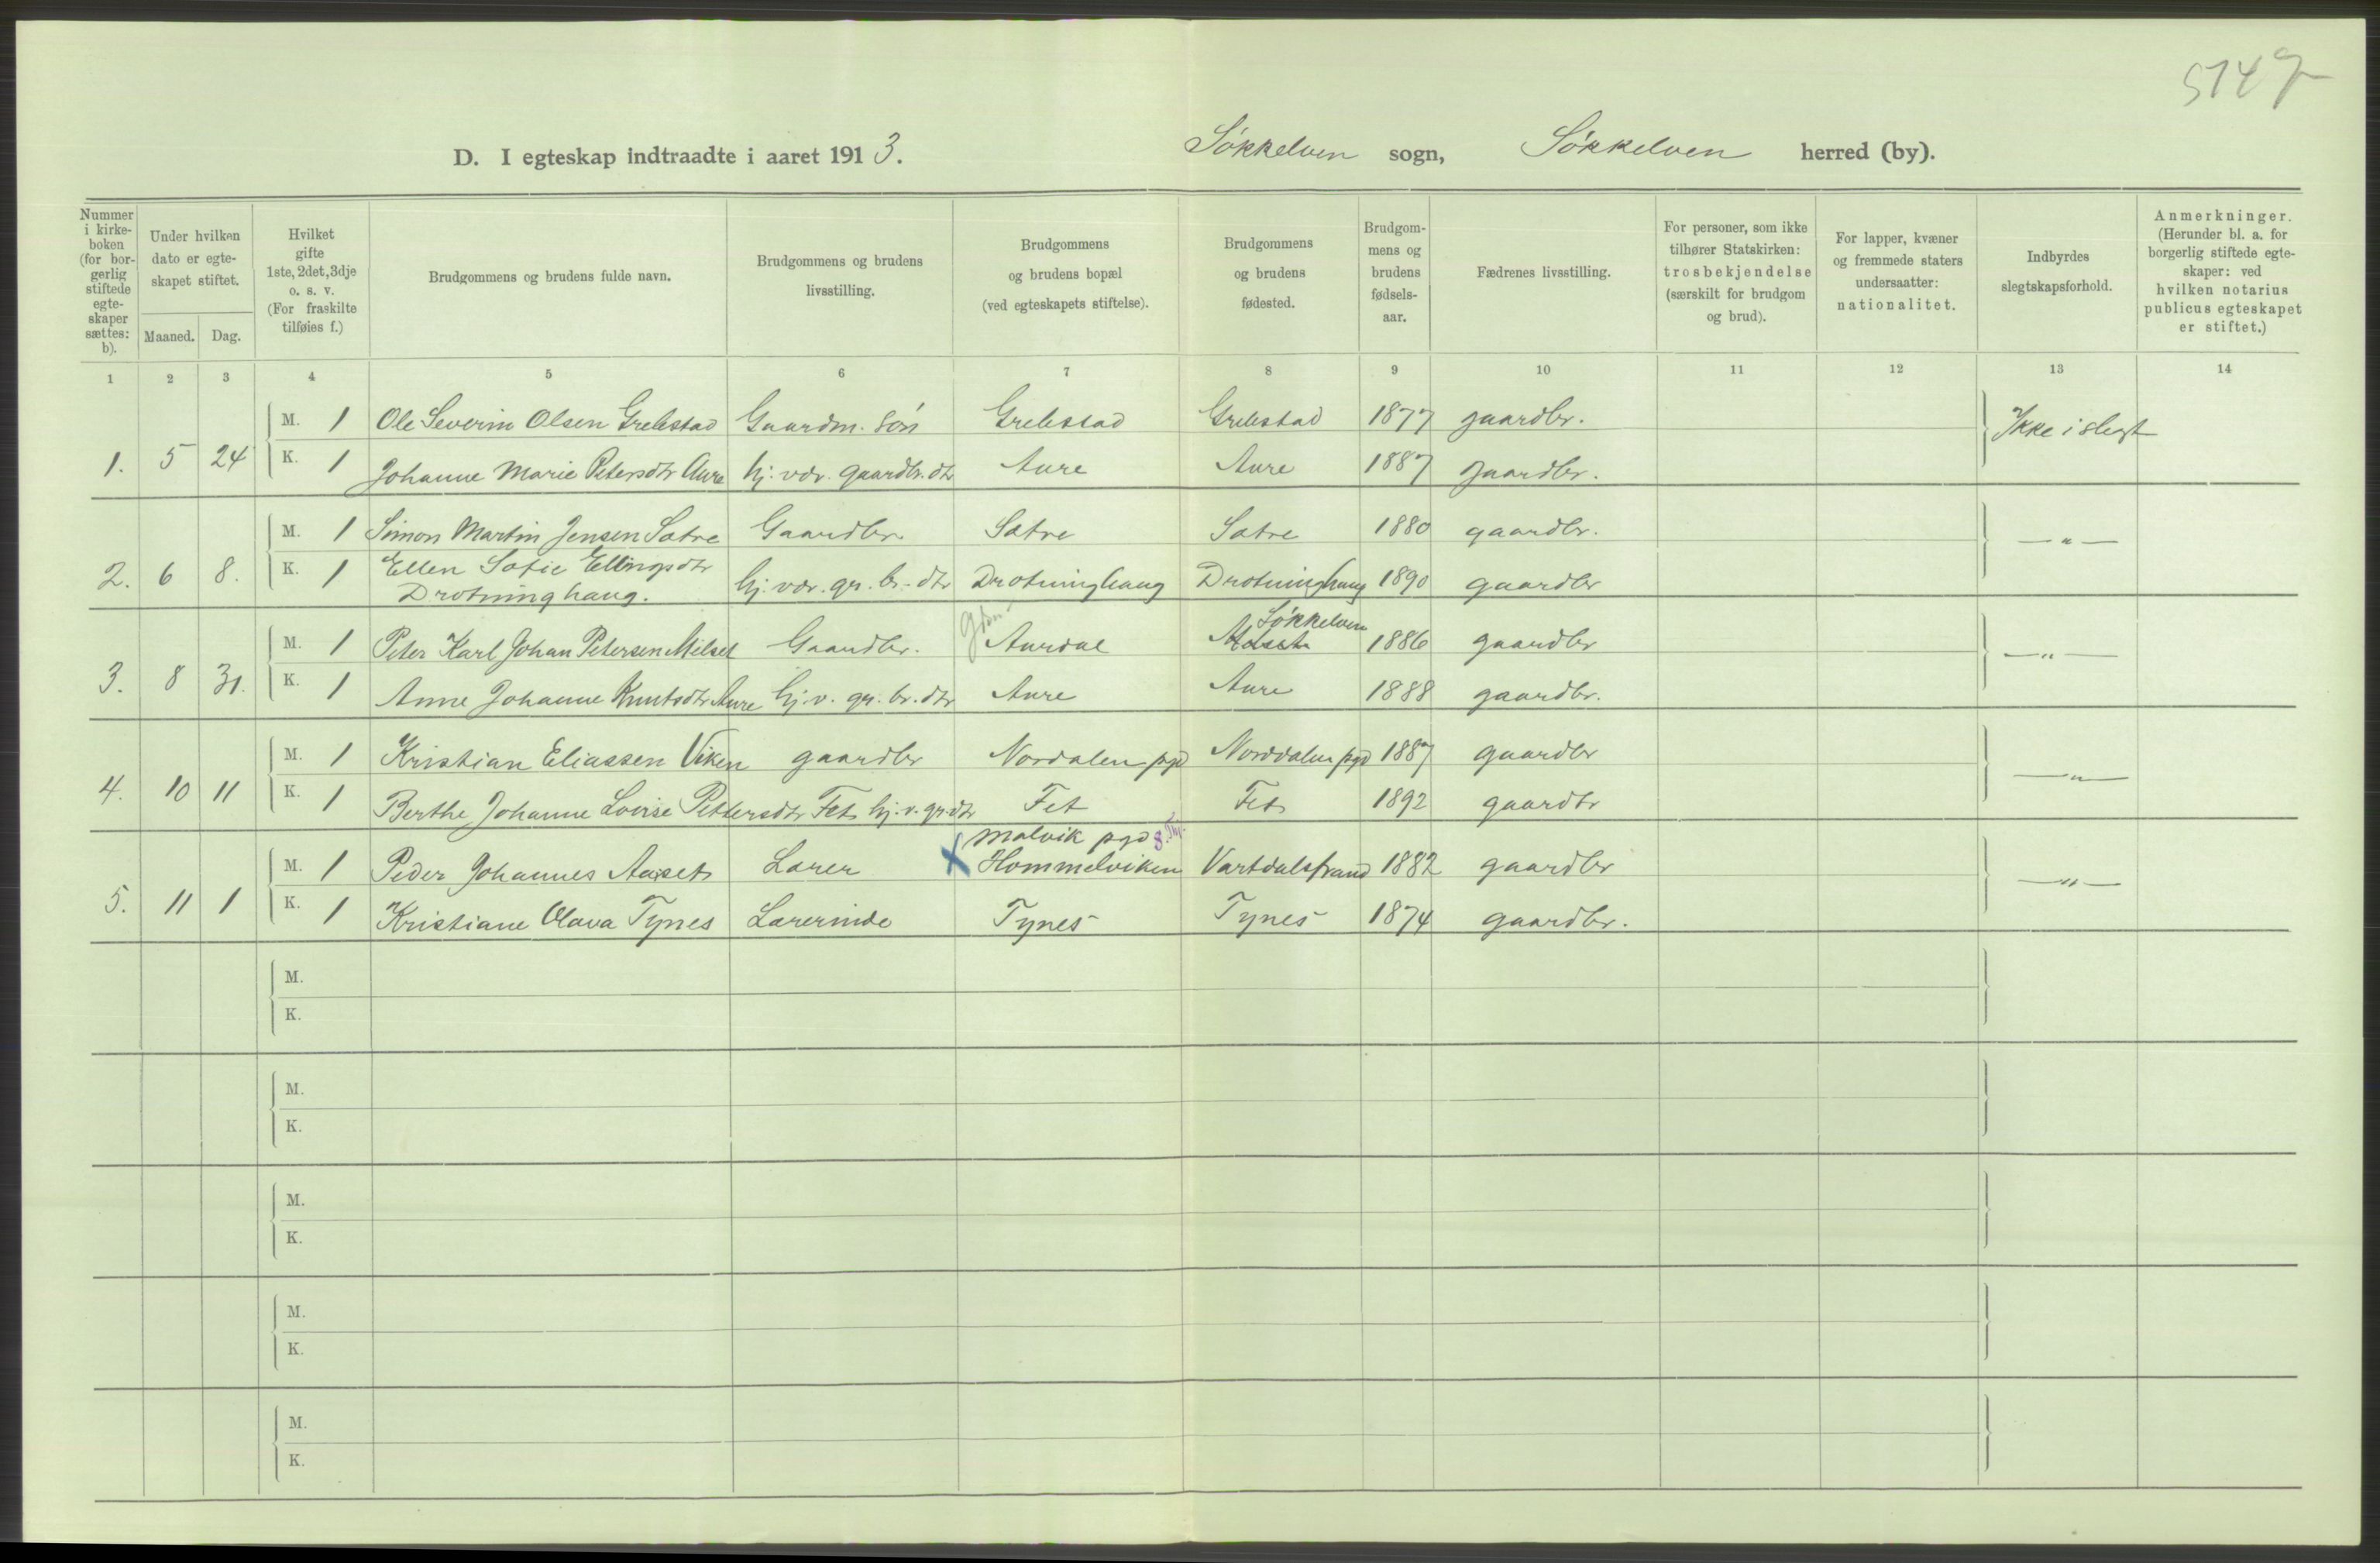 5147
D. I egteskap indtraadte i aaret 1913. Søkkelven sogn, Søkkelven herred (by).
Nummer i kirkeboken (for borgerlig stiftede egteskaper sættes: b).
Under hvilken dato er egteskapet stiftet.
Maaned. Dag.
Hvilket gifte 1ste, 2det, 3dje o. s. v. (For fraskilte tilføies f.)
Brudgommens og brudens fulde navn.
Brudgommens og brudens livsstilling.
Brudgommens og brudens bopæl (ved egteskapets stiftelse).
Brudgommens og brudens fødested.
Brudgommens og brudens fødselsaar.
Fædrenes livsstilling.
For personer, som ikke tilhører Statskirken: trosbekjendelse (særskilt for brudgom og brud).
For lapper, kvæner og fremmede staters undersaatter: nationalitet.
Indbyrdes slegtskapsforhold.
Anmerkninger. (Herunder bl. a. for borgerlig stiftede egteskaper: ved hvilken notarius publicus egteskapet er stiftet.)
1 2 3 4 5 6 7 8 9 10 11 12 13 14
M. 1 Ole Severin Olsen Grebstad Gaardm. søn Grebstad Grebstad 1877 gaardbr. Ikke i slegt
1. 5 24 K. 1 Johanne Marie Petersdtr Aure hj. vær. gaardbr. dtr Aure Aure 1887 gaardbr.
M. 1 Simon Martin Jensen Sætre Gaardbr. Sætre Sætre 1880 gaardbr. — „ —
2. 6 8. K. 1 Ellen Sofie Ellingsdtr
Drotninghaug. hj. vær. gr. br. dtr Drotninghaug Drotninghaug 1890 gaardbr
Søkkelven
M. 1 Peter Karl Johan Petersen Melset Gaardbr. Aurdal Melset 1886 gaardbr — „ —
3. 8 31. K. 1 Anne Johanne Knutsdtr Aure hj. v. gr. br. dtr Aure Aure 1888 gaardbr.
M. 1 Kristian Eliassen Viken gaardbr Nordalen pgd Norddalen pgd 1887 gaardbr — „ —
4. 10 11 K. 1 Berthe Johanne Lovise Pettersdtr Fet hj. v. gr. dtr Fet Fet 1892 gaardbr
Malvik pgd S. Thj.
M. 1 Peder Johannes Aaset Lærer x Hommelviken Vartdalstrand 1882 gaardbr — „ —
5. 11 1 K. 1 Kristiane Olava Tynes Lærerinde Tynes Tynes 1874 gaardbr.
M.
K.
M.
K.
M.
K.
M.
K.
M.
K.